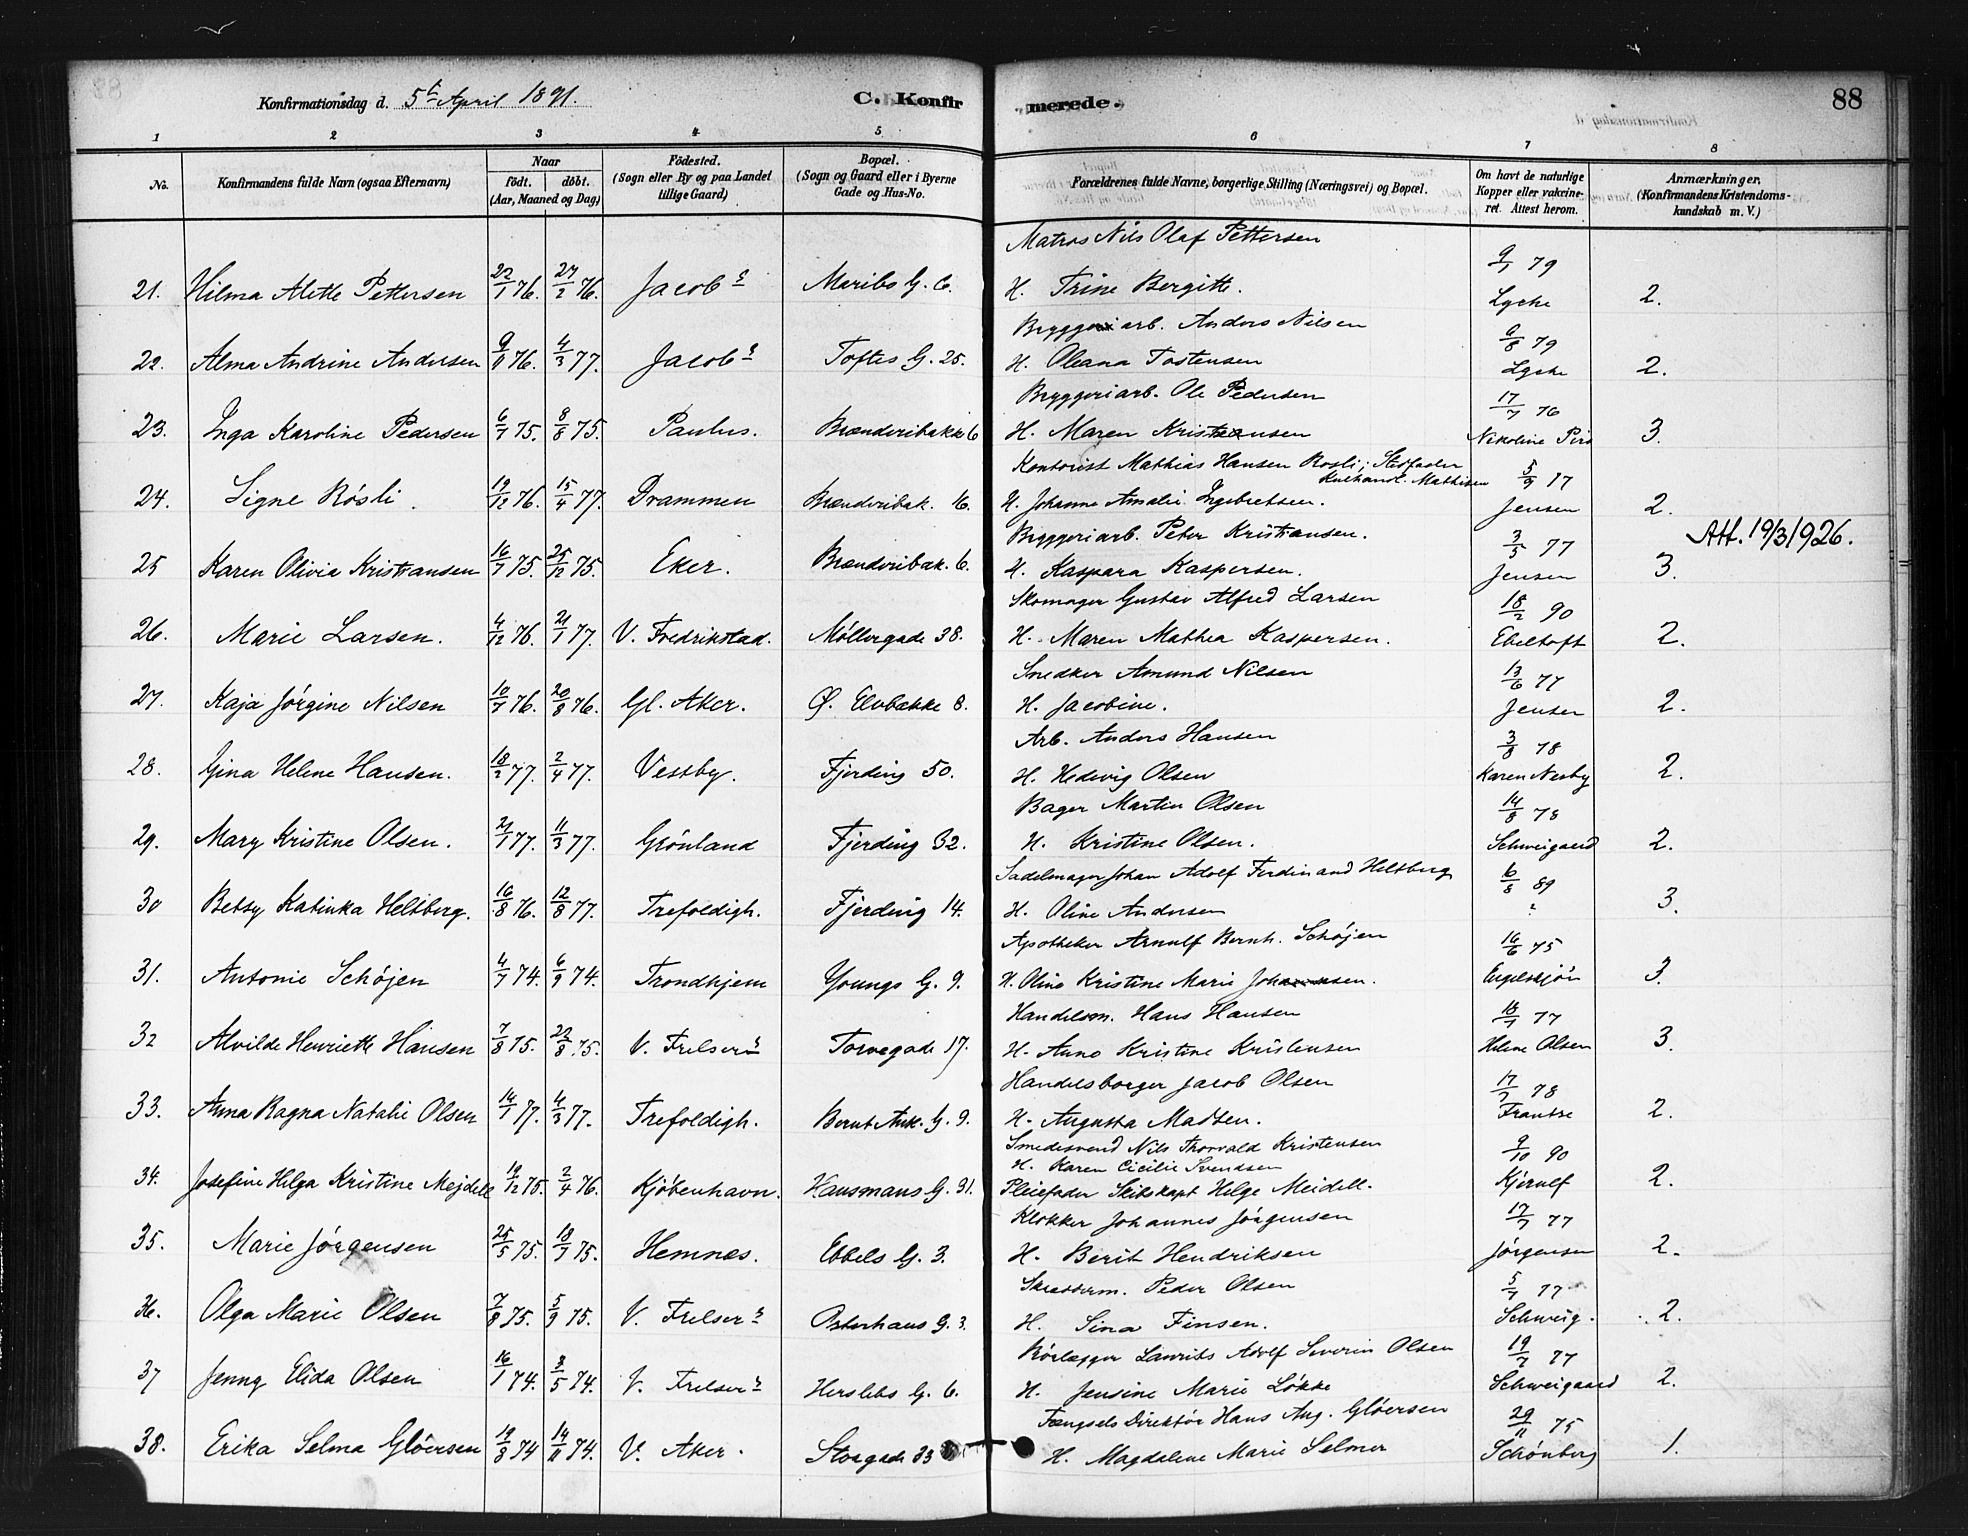 Konfirmationsdag d. 5te April 1891.
C. Konfirmerede.
88
1 2 3 4 5 6 7 8
No.
Konfirmandens fulde Navn (ogsaa Efternavn)
Naar
født. døbt.
(Aar, Maaned og Dag)
Födested.
(Sogn eller By og paa Landet
tillige Gaard)
Bopæl.
(Sogn og Gaard eller i Byerne
Gade og Hus-No.
Forældrenes fulde Navne, borgerlige Stilling (Næringsvei) og Bopæl.
Om havt de naturlige
Kopper eller vakcine-
ret. Attest herom.
Anmærkninger.
(Konfirmandens Kristendoms-
kundskab m. V.)
Matros Nils Olaf Pettersen
21. Hilma Alette Pettersen 22/1 76. 27/2 76. Jacobs Maribo G. 6. H. Trine Bergitte. 9/1 79 Lyche 2.
Bryggeriarb. Anders Nilsen
22. Alma Andrine Andersen 9/9 76. 4/3 77. Jacobs Toftes G. 25. H. Oleana Tostensen 9/8 79 Lyche 2.
Bryggeriarb. Ole Pedersen
23. Inga Karoline Pedersen 6/7 75. 8/8 75. Paulus. Brænderibakke 6 H. Maren Kristiansen 17/7 76 Nikoline Piro 3.
Kontorist Mathias Hansen Rosli; Stedfader
Kulhandl. Mathisen
24. Signe Rösli. 19/12 76. 15/4 77. Drammen Brænderibak. 16. H. Johanne Amalie Ingebretsen. 5/9 77 Jensen 2.
Bryggeriarb. Peter Kristiansen.
Att. 19/3 1926.
25 Karen Olivia Kristiansen 16/7 75. 25/12 75. Eker. Brænderibak. 6. H. Kaspara Kaspersen. 3/5 77 Jensen 3.
Skomager Gustav Alfred Larsen
26. Marie Larsen. 4/12 76. 21/1 77. V. Fredrikstad. Möllergade 38. H. Maren Mathea Kaspersen. 18/2 90 Ebeltoft 2.
Snedker Amund Nilsen
27. Kaja Jörgine Nilsen 10/7 76. 20/8 76. Gl. Aker. Ø. Elvebakke 8. H. Jacobine. 13/6 77 Jensen 2.
Arb. Anders Hansen
28. Gina Helene Hansen. 18/2 77. 2/4 77. Vestby. Fjerding 50. H. Hedevig Olsen 3/8 78 Karen Nesby 2.
Bager Martin Olsen
29. Mary Kristine Olsen. 21/1 77. 11/3 77. Grönland Fjerding 32. H. Kristine Olsen. 14/8 78 Schweigaard 2.
Sadelmager Johan Adolf Ferdinand Heltberg
30 Betsy Katinka Heltberg. 16/8 76. 12/8 77. Trefoldigh. Fjerding 14. H. Oline Andersen 6/8 89 ? 3.
Apotheker Arnulf Bernh. Schöjen
31. Antonie Schöjen 4/7 74. 6/9 74. Trondhjem Youngs G. 9. H. Oline Kristine Marie Johannesen. 16/6 75 Engelskjön 3.
Handelsm. Hans Hansen
32 Alvilde Henriette Hansen 7/8 75. 22/8 75. V. Frelsers Torvegade 17. H. Anne Kristine Kristensen 18/1 77 Helene Olsen 3.
Handelsborger Jacob Olsen
33. Anna Ragna Natalie Olsen 14/1 77. 4/3 77. Trefoldigh. Bernt Ank. G. 9. H. Augusta Madsen. 17/7 78 Frantze 2.
Smedesvend Nils Thorvald Kristensen
H. Karen Cicilie Svendsen
34. Josefine Helga Kristine Mejdell 19/12 75. 2/4 76. Kjöbenhavn. Hausmans G. 31. Pleiefader Skibskapt Helge Meidell. 9/10 90 Kjerulf 2.
Klokker Johannes Jörgensen
35. Marie Jörgensen 25/5 75. 18/7 75. Hemnes. Ebbels G. 3. H. Berit Hendriksen 17/7 77 Jörgensen 2.
Skrædderm. Peder Olsen
36. Olga Marie Olsen 7/8 75. 5/9 75. V. Frelsers Osterhaus G. 3. H. Sina Finsen. 5/7 77 Schweig. 2.
Rörlægger Laurits Adolf Severin Olsen
37 Jenny Elida Olsen 16/1 74. 3/5 74. V. Frelsers Herslebs G. 6. H. Jensine Marie Lökke 19/7 77 Schweigaard 2.
Fængsels Direktör Hans Aug. Glöersen
38. Erika Selma Glöersen 19/8 74 14/11 74. V. Aker. Storgade 33 H. Magdalene Marie Selmer 29/11 75 Schönberg 1.